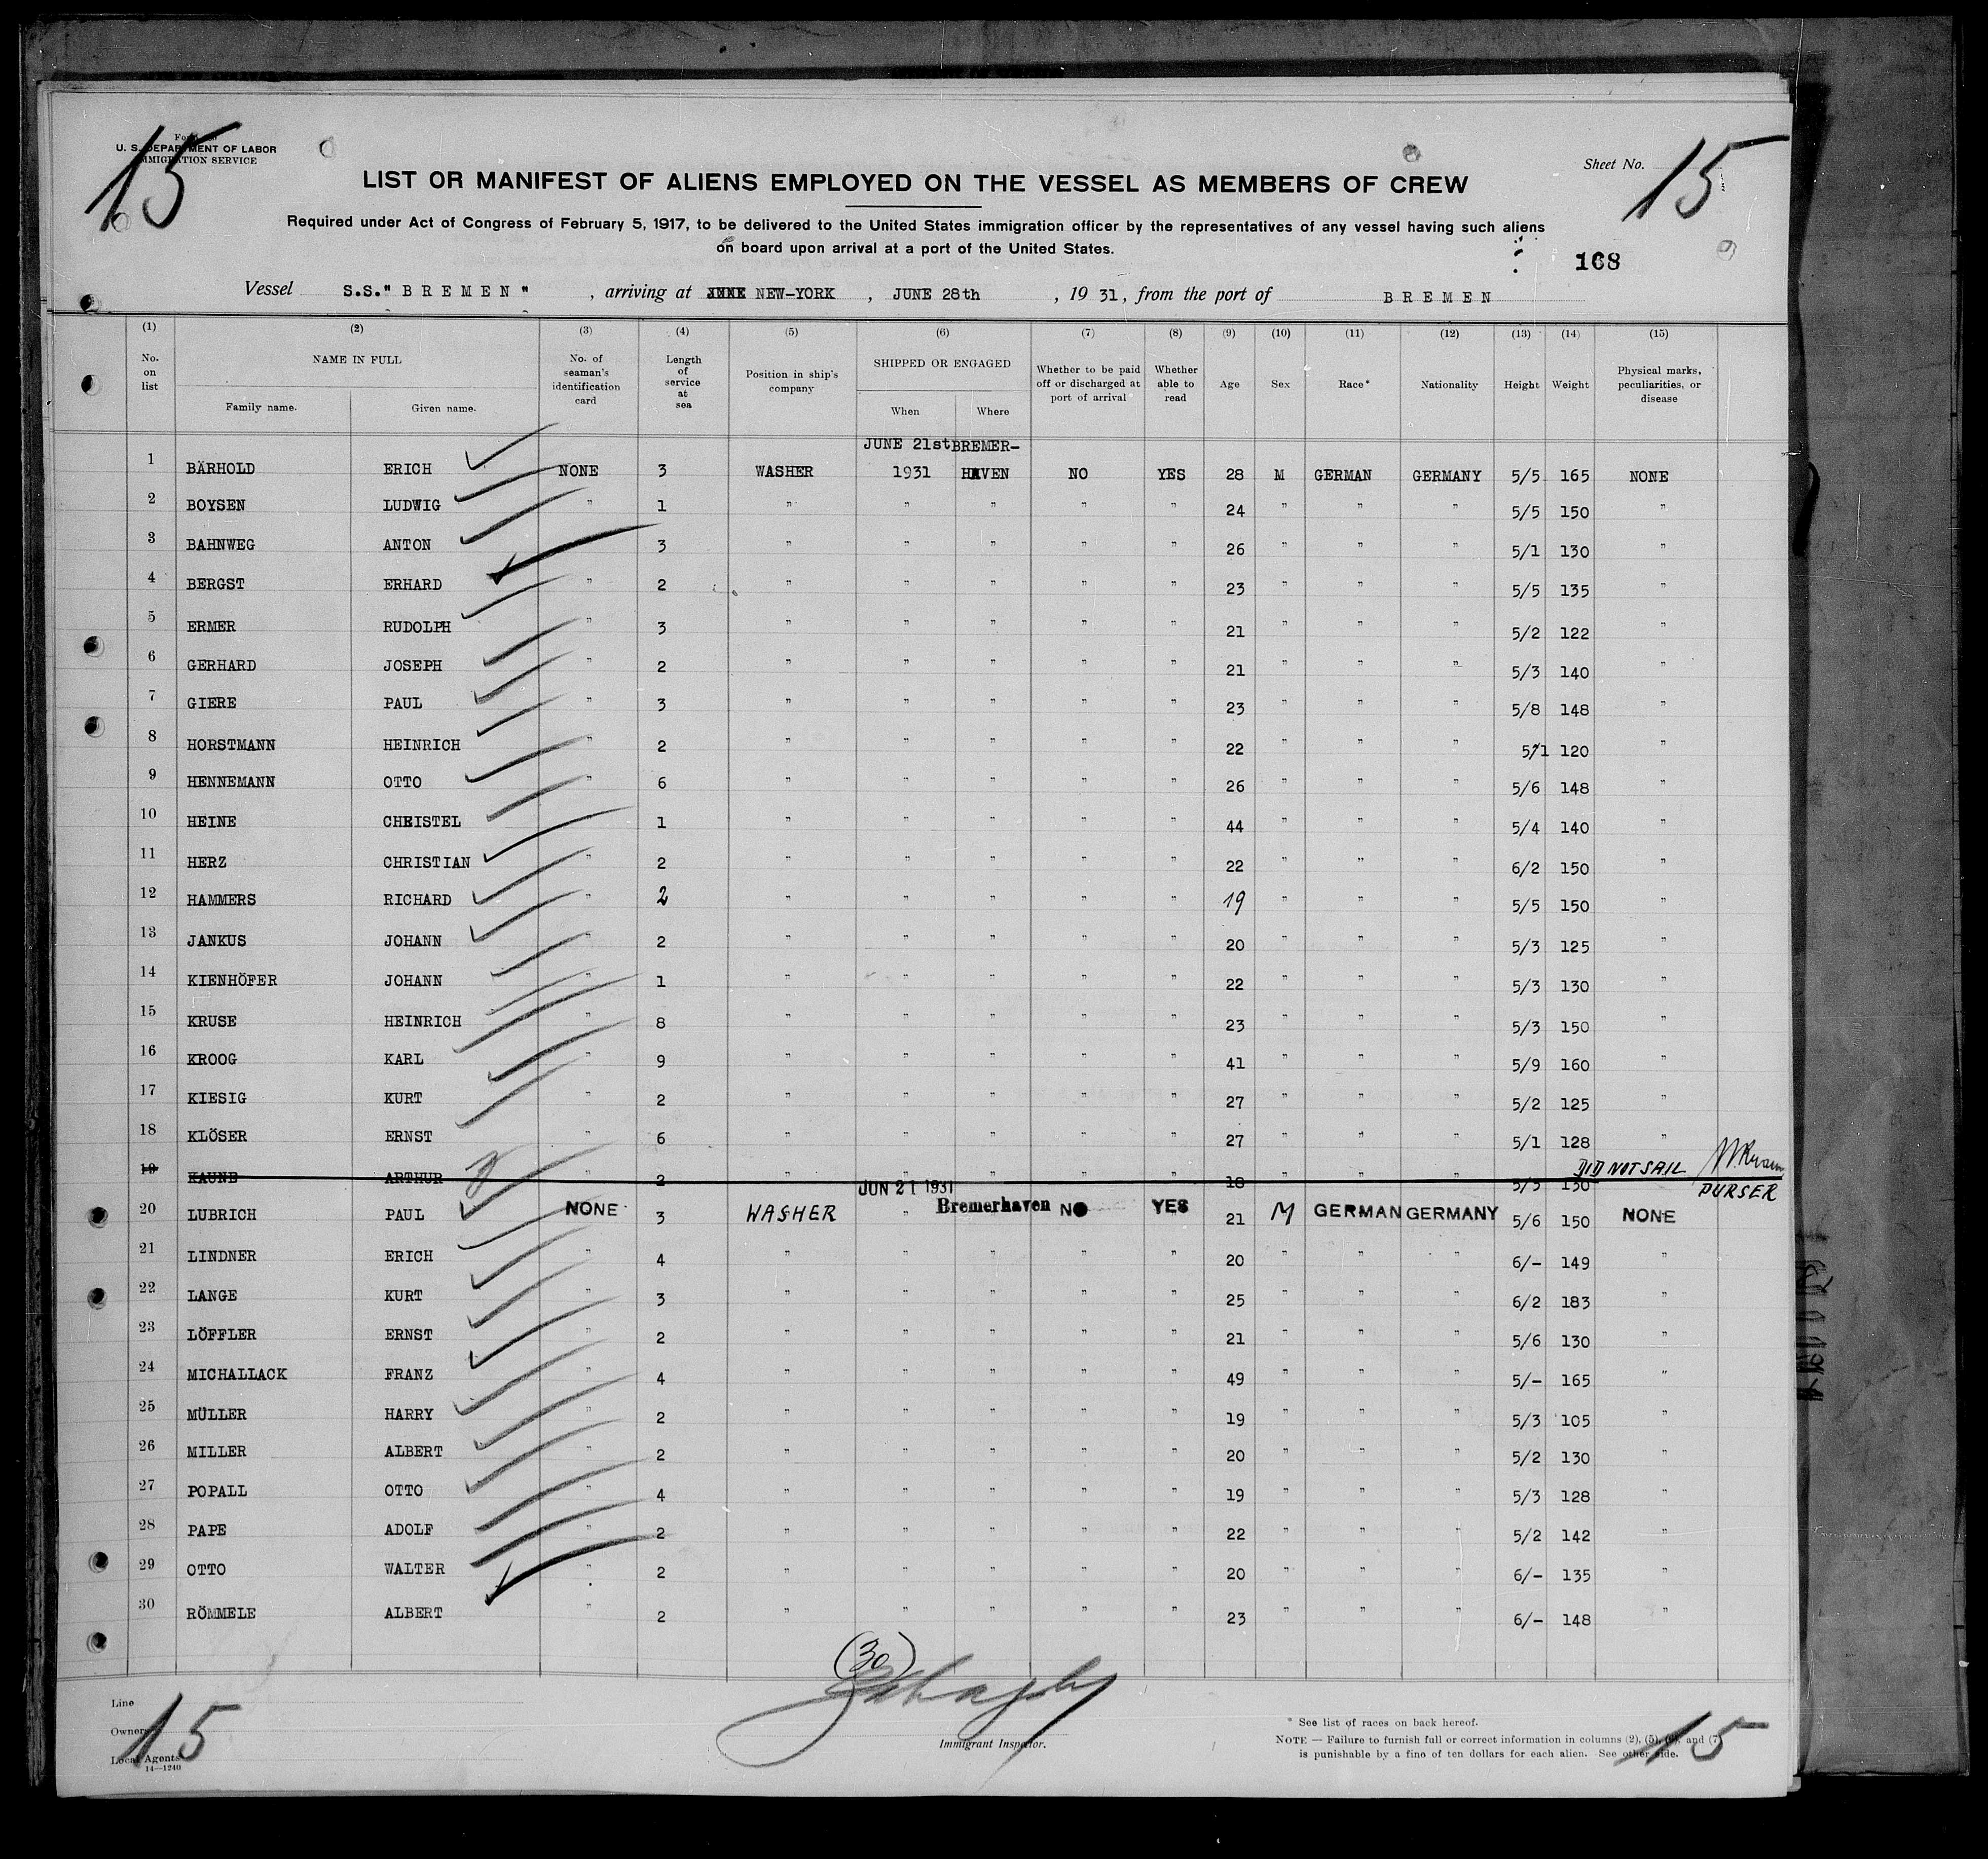 15
U. S. DEPARTMENT OF LABOR
IMMIGRATION SERVICE
Sheet No. 15
LIST OR MANIFEST OF ALIENS EMPLOYED ON THE VESSEL AS MEMBERS OF CREW
Required under Act of Congress of February 5, 1917, to be delivered to the United States immigration officer by the representatives of any vessel having such aliens
on board upon arrival at a port of the United States.
168
Vessel S.S." B R E M E N " , arriving at NEW-YORK , JUNE 28th , 19 31, from the port of B R E M E N
(1) (2) (3) (4) (5) (6) (7) (8) (9) (10) (11) (12) (13) (14) (15)
No. on list NAME IN FULL Family name. Given name. No. of seaman's identification card Length of service at sea Position in ship's company SHIPPED OR ENGAGED When Where Whether to be paid off or discharged at port of arrival Whether able to read Age Sex Race* Nationality Height Weight Physical marks, peculiarities, or disease
JUNE 21st BREMER-
1 BÄRHOLD ERICH NONE 3 WASHER 1931 HAVEN NO YES 28 M GERMAN GERMANY 5/5 165 NONE
2 BOYSEN LUDWIG " 1 " " " " " 24 " " " 5/5 150 "
3 BAHNWEG ANTON 3 " " " " " 26 " " " 5/1 130 "
4 BERGST ERHARD " 2 " " " " " 23 " " " 5/5 135 "
5 ERMER RUDOLPH " 3 " " " " " 21 " " " 5/2 122 "
6 GERHARD JOSEPH " 2 " " " " " 21 " " " 5/3 140 "
7 GIERE PAUL " 3 " " " " " 23 " " " 5/8 148 "
8 HORSTMANN HEINRICH " 2 " " " " " 22 " " " 5/1 120 "
9 HENNEMANN OTTO " 6 " " " " " 26 " " " 5/6 148 "
10 HEINE CHRISTEL 1 " " " " " 44 " " " 5/4 140 "
11 HERZ CHRISTIAN " 2 " " " " " 22 " " " 6/2 150 "
12 HAMMERS RICHARD " 2 " " " " " 19 " " " 5/5 150 "
13 JANKUS JOHANN " 2 " " " " " 20 " " " 5/3 125 "
14 KIENHÖFER JOHANN " 1 " " " " " 22 " " " 5/3 130 "
15 KRUSE HEINRICH " 8 " " " " " 23 " " " 5/3 150 "
16 KROOG KARL " 9 " " " " " 41 " " " 5/9 160 "
17 KIESIG KURT " 2 " " " " " 27 " " " 5/2 125 "
18 KLÖSER ERNST 6 " " " " " 27 " " " 5/1 128 "
19 KAUNB ARTHUR " 2 " " " " " 18 " " " 5/5 130 DID NOT SAIL
PURSER
JUN 21 1931
20 LUBRICH PAUL NONE 3 WASHER " Bremerhaven NO YES 21 M GERMAN GERMANY 5/6 150 NONE
21 LINDNER ERICH " 4 " " " " " 20 " " " 6/- 149 "
22 LANGE KURT " 3 " " " " " 25 " " " 6/2 183 "
23 LÖFFLER ERNST " 2 " " " " " 21 " " " 5/6 130 "
24 MICHALLACK FRANZ " 4 " " " " " 49 " " " 5/- 165 "
25 MÜLLER HARRY " 2 " " " " " 19 " " " 5/3 105 "
26 MILLER ALBERT " 2 " " " " " 20 " " " 5/2 130 "
27 POPALL OTTO " 4 " " " " " 19 " " " 5/3 128 "
28 PAPE ADOLF " 2 " " " " " 22 " " " 5/2 142 "
29 OTTO WALTER " 2 " " " " " 20 " " " 6/- 135 "
30 RÖMMELE ALBERT " 2 " " " " " 23 " " " 6/- 148 "
(30)
Line
Owners
Local Agents
14—1240
15
Immigrant Inspector.
* See list of races on back hereof.
NOTE — Failure to furnish full or correct information in columns (2), (5), (6), and (7)
is punishable by a fine of ten dollars for each alien. See other side.
15